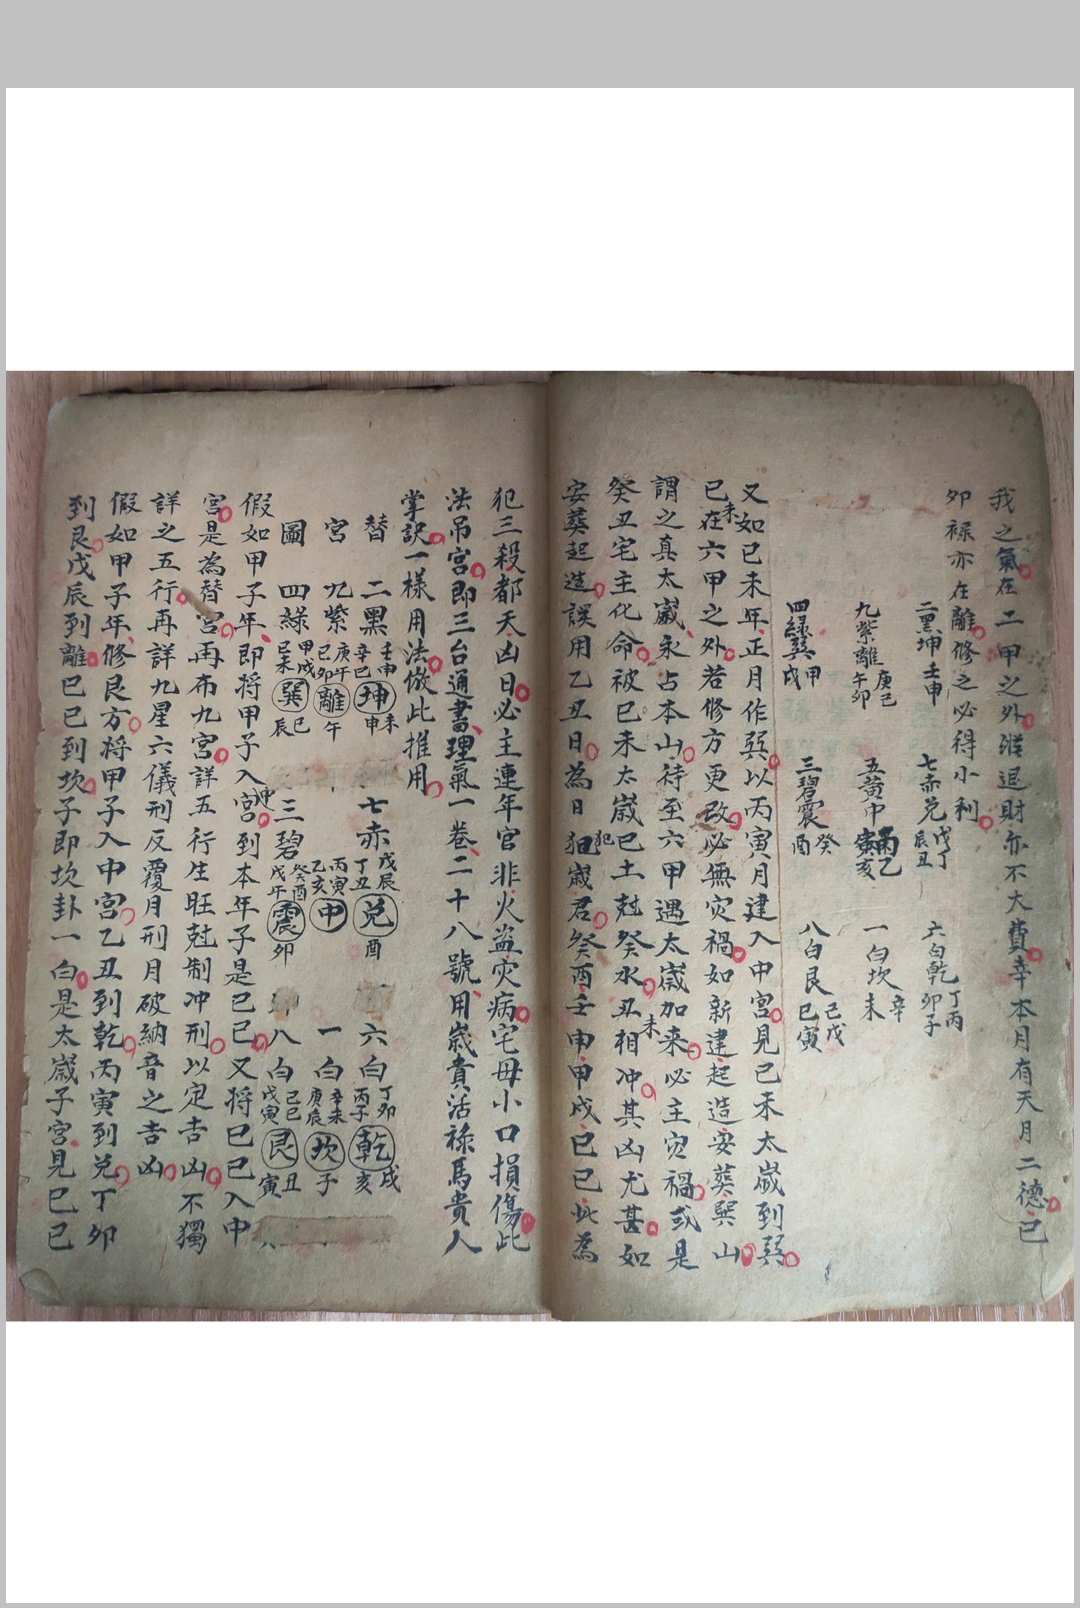 我之氣在二甲之外雖退財亦不大費幸本月有天月二德己
卯祿亦在離修之必得小利
二黑坤壬申 七赤兌戊丁辰丑 六白乾丁丙卯子
九紫離庚己午卯 五黃中乙亥 一白坎辛未
四綠巽甲戌 三碧震癸酉 八白艮己戊巳寅
又如己未年正月作巽以丙寅月建入中宮見己未太歲到巽
已在六甲之外若修方更改必無灾禍如新建起造安葬巽山
謂之真太歲永占本山待至六甲遇太歲加來必主灾禍或是
癸丑宅主化命被己未太歲巳土尅癸水丑未相冲其凶尤甚如
安葬起造誤用乙丑日為日犯歲君癸酉壬申甲戌己巳此為
犯三殺都天凶日必主連年官非火盗灾病宅母小口損傷此
法吊宮即三台通書理氣一卷二十八號用歲貴活祿馬貴人
掌訣一樣用法倣此推用
替 二黑壬申辛巳坤未申 七赤戊辰丁丑兌酉 六白丁卯丙子乾戌亥
宮 九紫庚午己卯離午 丙寅乙亥中 一白辛未庚辰坎子
圖 四綠甲戌己未巽巳辰 三碧癸酉戊午震卯 八白己巳戊寅艮丑寅
假如甲子年即將甲子入中宮到本年子是己巳又将己巳入中
宮是為替宮再布九宮詳五行生旺尅制冲刑以定吉凶不獨
詳之五行再詳九星六儀刑反覆月刑月破納音之吉凶
假如甲子年修艮方將甲子入中宮乙丑到乾丙寅到兌丁卯
到艮戊辰到離己巳到坎子即坎卦一白是太歲子宮見己巳